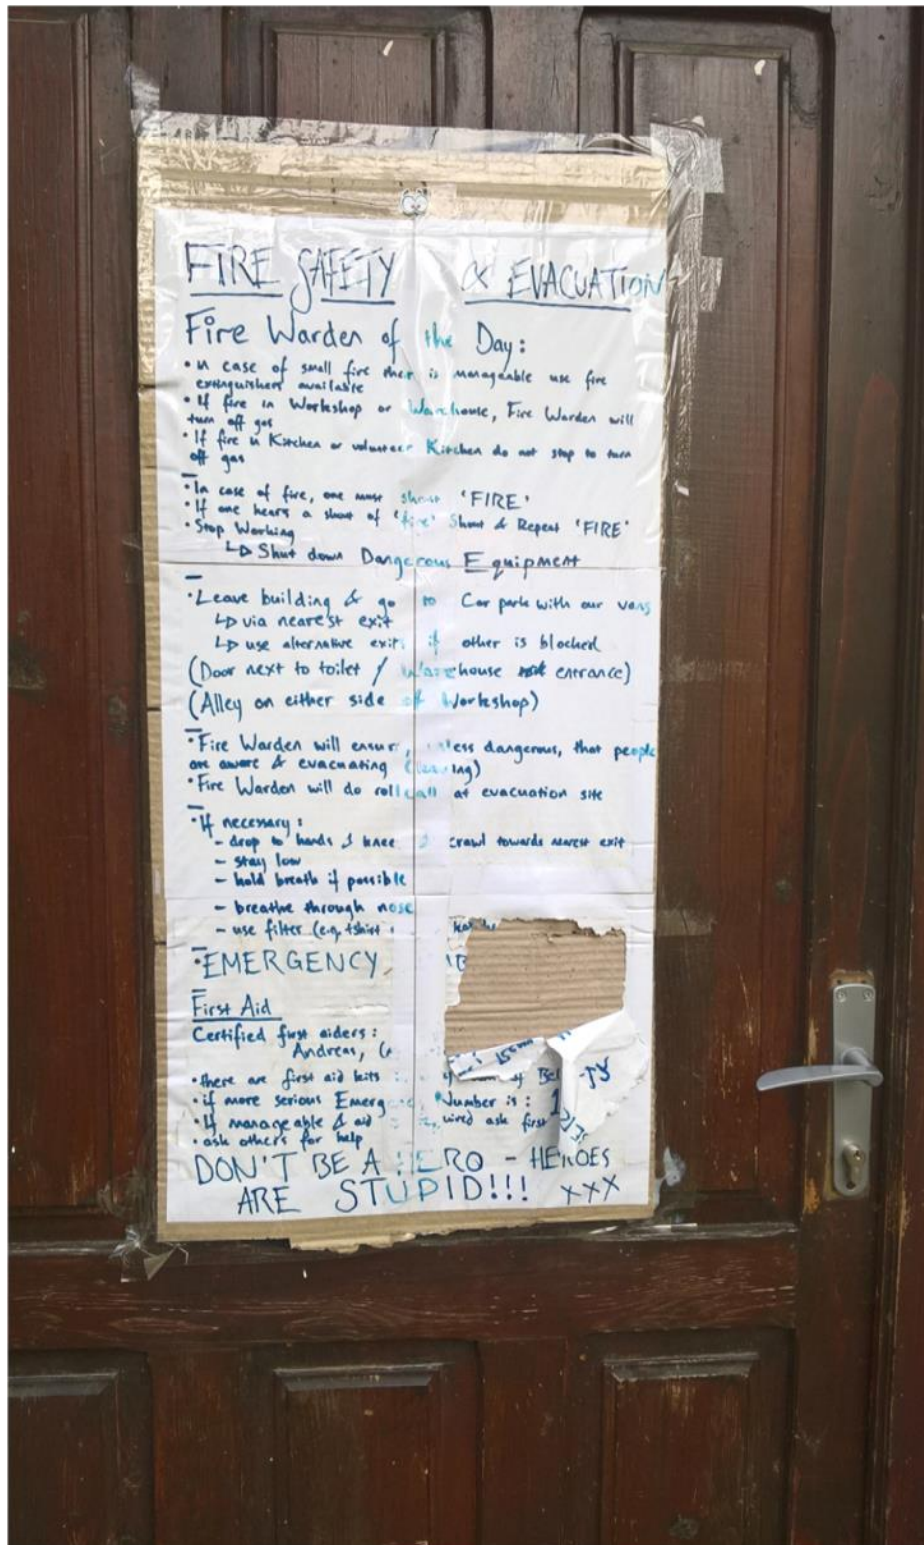 FIRE SAFETY & EVACUATION
Fire Warden of the Day:
• In case of small fire that is manageable use fire
extinguishers available
• If fire in Workshop or Warehouse, Fire Warden will
turn off gas
• If fire in Kitchen or volunteer Kitchen do not stop to turn
off gas
• In case of fire, one must shout 'FIRE'
• If one hears a shout of 'fire' Shout & Repeat 'FIRE'
• Stop Working
↳ Shut down Dangerous Equipment
• Leave building & go to Car park with our vans
↳ via nearest exit
↳ use alternative exit if other is blocked
(Door next to toilet / Warehouse entrance)
(Alley on either side of Workshop)
• Fire Warden will ensure, unless dangerous, that people
are aware & evacuating (leaving)
• Fire Warden will do roll call at evacuation site
• If necessary:
- drop to hands & knee & crawl towards nearest exit
- stay low
- hold breath if possible
- breathe through nose
- use filter (e.g. tshirt
• EMERGENCY
First Aid
Certified first aiders:
Andreas,
• there are first aid kits
• if more serious Emergency Number is: 1
• If manageable & aid required ask first
• ask others for help
DON'T BE A HERO - HEROES
ARE STUPID!!! XXX